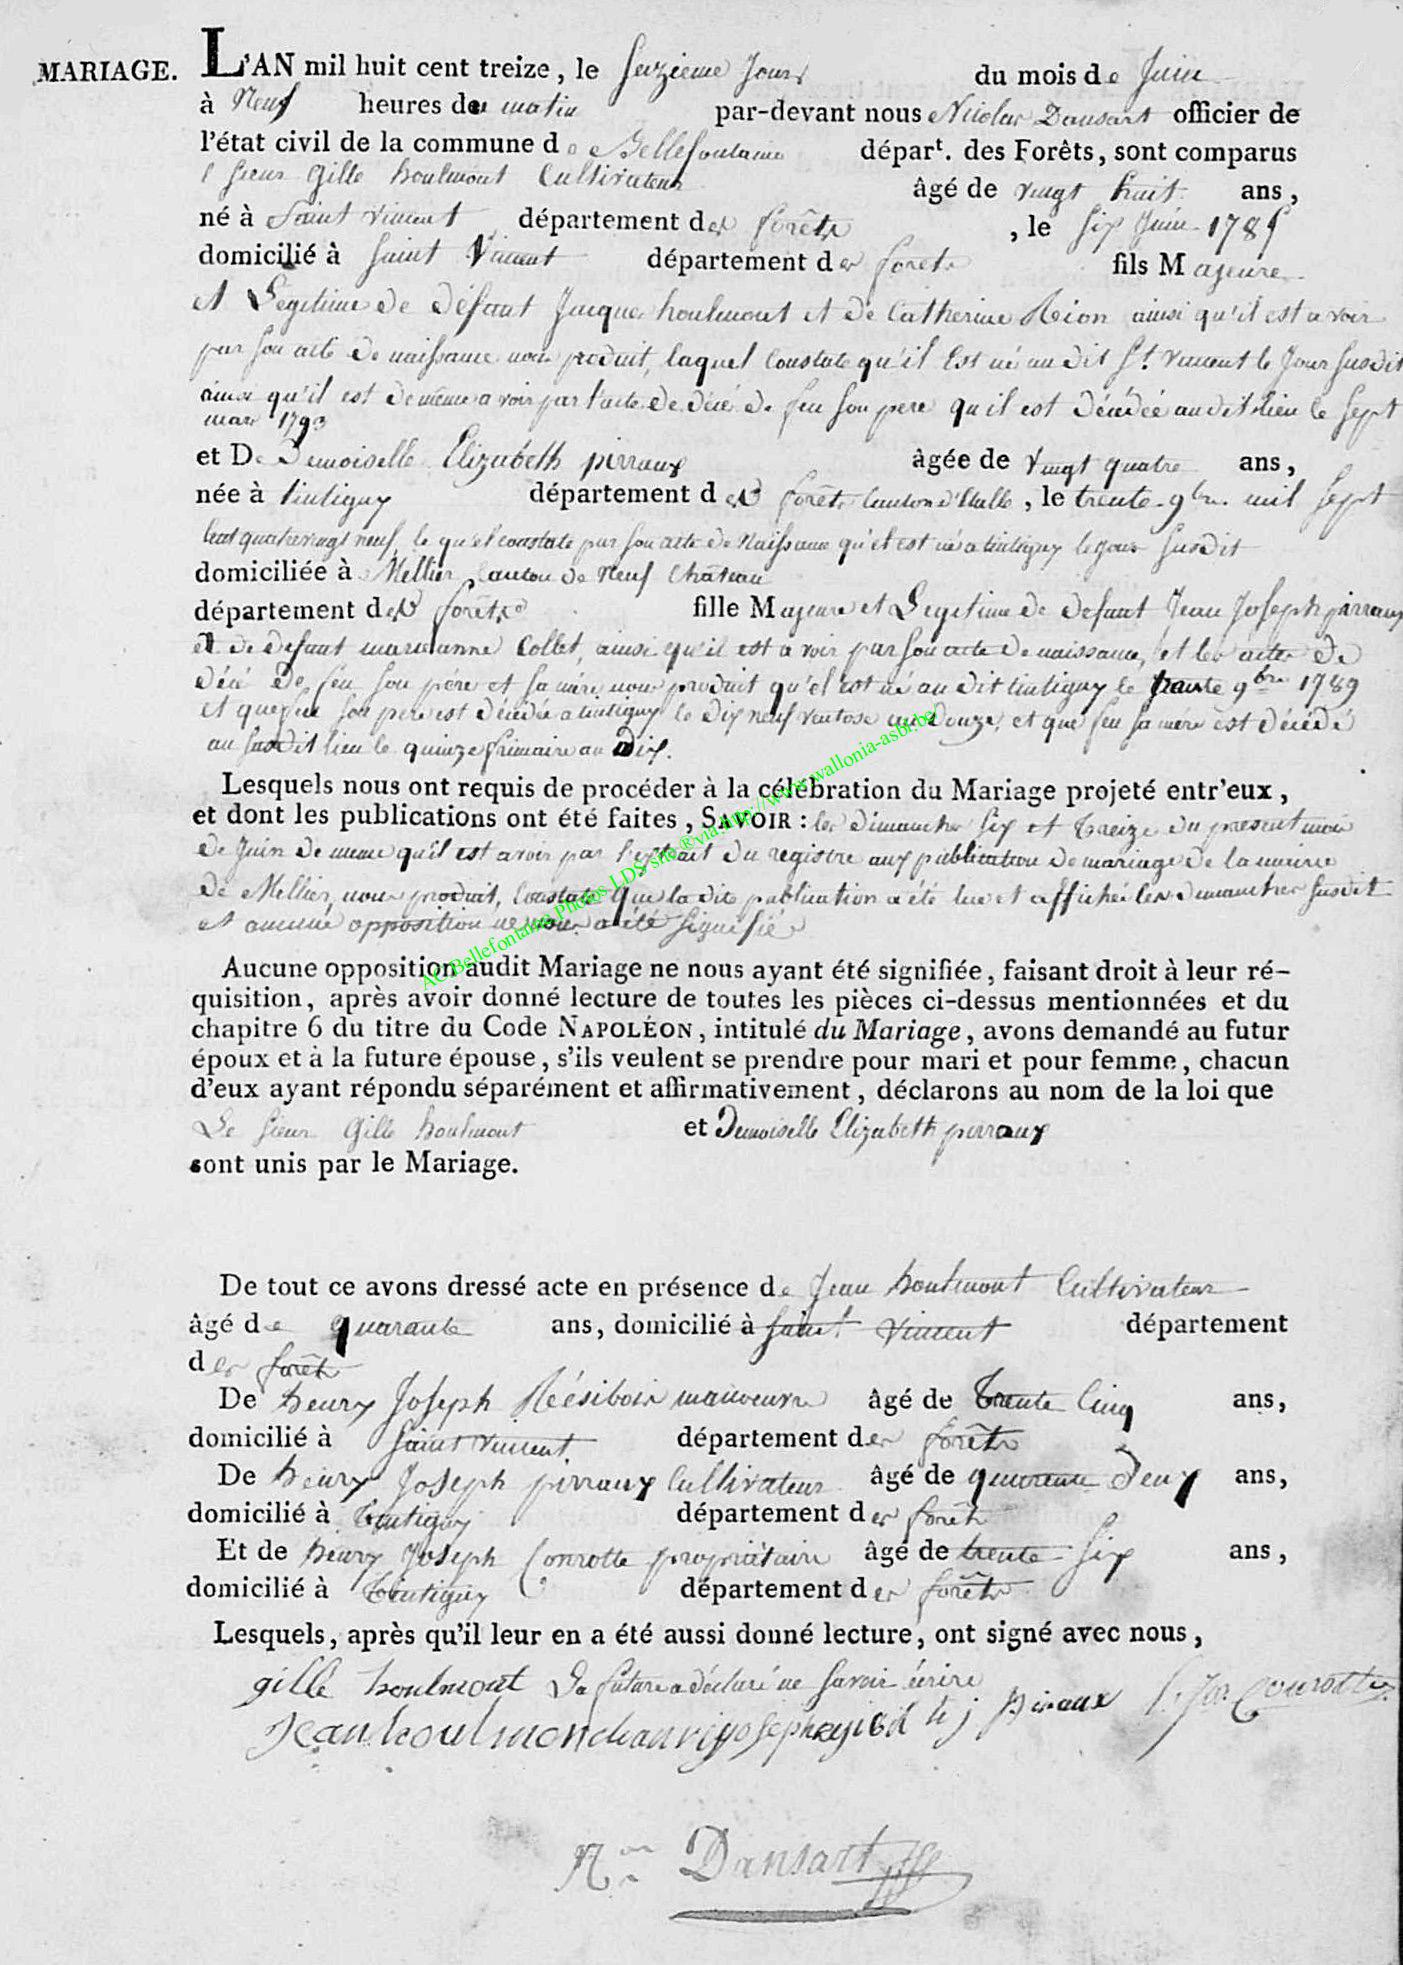 MARIAGE. L'AN mil huit cent treize, le Seizieme Jours du mois de Juin
à Neuf heures du matin par-devant nous Nicolas Dansart officier de
l'état civil de la commune de Bellefontaine départ. des Forêts, sont comparus
l Sieur Gille houlmont Cultivateur âgé de vingt huit ans,
né à Saint Vincent département des forêts, le Six Juin 1785
domicilié à Saint Vincent département des forets fils Majeure
et Legitime de défunt Jacque houlmont et de Catherine Rion ainsi qu'il est a voir
par Son acte de naissance nous produit, laquel Constate qu'il Est né au dit St. Vincent le Jour Susdit
ainsi qu'il est de même a voir par l'acte de décé de feu Son pere qu il est décédée audit lieu le Sept
mars 1793
et De Demoiselle Elizabeth pirraux âgée de Vingt quatre ans,
née à tintigny département des forêts Canton d'Etalle, le trente 9bre mil Sept
Cent quatrevingt neuf, le qu'el constate par Son acte de Naissance qu'el est né a tintigny le Jour Susdit
domiciliée à Mellier Canton de Neuf Château
département des forêts fille Majeure et Legitime de defunt Jean Joseph pirraux
et de defunt marie anne Collet, ainsi qu'il est a voir par Son acte de naissance, et les actes de
décé de feu Son pére et Sa mére nous produit qu'el est né au dit tintigny le trente 9bre 1789
et que feu Son pere est décédée a tintigny le dix neuf Ventose an douze, et que feu Sa mére est décédé
au Susdit lieu le quinze frimaire an dix.
Lesquels nous ont requis de procéder à la célébration du Mariage projeté entr'eux,
et dont les publications ont été faites, SAVOIR : les dimanches Six et treize du present mois
de Juin de meme qu'il est a voir par l'extrait du registre aux publication de mariage de la mairie
de Mellier, nous produit, Constate que la dite publication a été lue et affiché les dimanches Susdit
et aucune opposition ne nous a été Signifiée
AC Bellefontaine Photos LDS site ® via http://www.wallonia-asbl.be/
Aucune opposition audit Mariage ne nous ayant été signifiée, faisant droit à leur ré-
quisition, après avoir donné lecture de toutes les pièces ci-dessus mentionnées et du
chapitre 6 du titre du Code NAPOLÉON, intitulé du Mariage, avons demandé au futur
époux et à la future épouse, s'ils veulent se prendre pour mari et pour femme, chacun
d'eux ayant répondu séparément et affirmativement, déclarons au nom de la loi que
Le Sieur Gille houlmont et Demoiselle Elizabeth pirraux
sont unis par le Mariage.
De tout ce avons dressé acte en présence de Jean houlmont Cultivateur
âgé de quarante ans, domicilié à Saint Vincent département
des forêts
De henry Joseph Résibois manoeuvre âgé de trente Cinq ans,
domicilié à Saint Vincent. département des forêts
De henry Joseph pirraux Cultivateur âgé de quarente deux ans,
domicilié à tintigny département des forêts
Et de henry Joseph Conrotte propriétaire âgé de trente Six ans,
domicilié à tintigny département des forêts
Lesquels, après qu'il leur en a été aussi donné lecture, ont signé avec nous,
gille houlmont La future a déclaré ne Savoir écrire
Jean houlmon h j piraux h. Jos. Conrotte
Nas Dansart